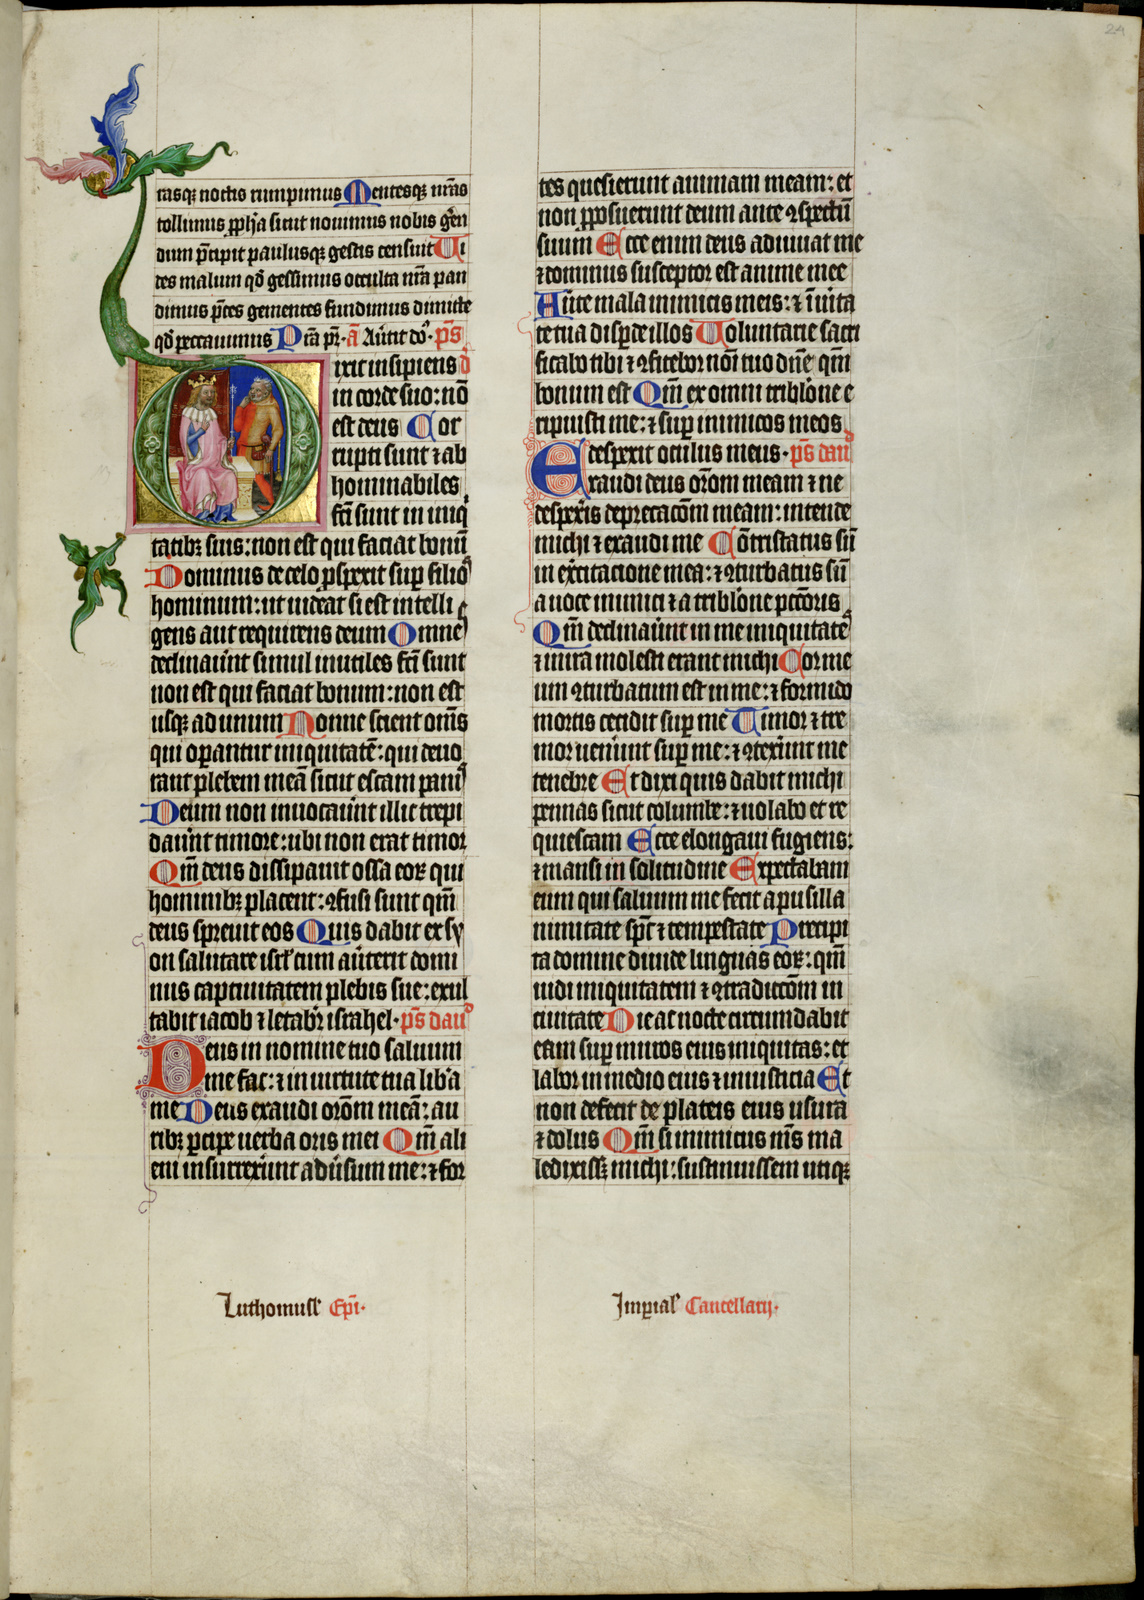 24
rasq noctis rumpimus Mentesq nras
tollimus pph̃a sicut nouimus nobis gẽn
dum p̃cipit paulusq gestis censuit Ui
des malum qđ gessimus occulta nr̃a pan
dimus p̃ces gementes fundimus dimitte
qđ peccauimus P̃ia pr̃. ã Aũtit dõ. p̃s
D ixit insipiens đ
in corde suo: nõ
est deus Cor
rupti sunt ⁊ ab
hominabiles
fc̃i sunt in iniq
tatibꝫ suis: non est qui faciat bonũ
Dominus de celo ꝓspexit sup̱ filios
hominum: ut uideat si est intelli
gens aut requirens deum Omnes
declinaũnt simul inutiles fc̃i sunt
non est qui faciat bonum: non est
usq ad unum Nonne scient om̃s
qui op̱antur iniquitatẽ: qui deuo
rant plebem meã sicut escam panis
Deum non inuocaũnt illic trepi
daũnt timore: ubi non erat timor
Qm̃ deus dissipauit ossa eoꝝ qui
hominibꝫ placent: ꝯfusi sunt qm̃
deus spreuit eos Quis dabit ex sy
on salutare isrl̃ cum aũterit domi
nus captiuitatem plebis sue: exul
tabit iacob ⁊ letabr̃ israhel. p̃s dauđ
Deus in nomine tuo saluum
me fac: ⁊ in uirtute tua lib̃a
me Deus exaudi orõm meã: au
ribꝫ p̱cipe uerba oris mei Qm̃ ali
eni insurrex̃unt adũsum me: ⁊ for
tes quesierunt animam meam: et
non ꝓposuerunt deum ante ꝯspectũ
suum Ecce enim deus adiuuat me
⁊ dominus susceptor est anime mee
Aũte mala inimicis meis: ⁊ ĩ uita
te tua disp̱de illos Uoluntarie sacri
ficabo tibi ⁊ ꝯfitebor nõi tuo dñe qm̃
bonum est Qm̃ ex omni tribl̃one e
ripuisti me: ⁊ sup̱ inimicos meos
despexit oculus meus. p̃s dauđ
Exaudi deus orõm meam ⁊ ne
despex̃is deprecacõm meam: intende
michi ⁊ exaudi me Cõtristatus sũ
in exẽcitacione mea: ⁊ ꝯturbatus sũ
a uoce inimici ⁊ a tribl̃one pctõris
Qm̃ declinaũunt in me iniquitates
⁊ in ira molesti erant michi Cor me
um ꝯturbatum est in me: ⁊ formido
mortis cecidit sup̱ me Timor ⁊ tre
mor uenẽunt sup̱ me: ⁊ ꝯtex̃unt me
tenebre Et dixi quis dabit michi
pennas sicut columbe: ⁊ uolabo et re
quiescam Ecce elongaui fugiens:
⁊ mansi in solitudine Expectabam
eum qui saluum me fecit a pusilla
nimitate sp̃c ⁊ tempestate Precipi
ta domine diuide linguas eoꝝ: qm̃
uidi iniquitatem ⁊ ꝯtradiccõm in
ciuitate Die ac nocte circumdabit
eam sup̱ muros eius iniquitas: et
labor in medio eius ⁊ iniusticia Et
non defecit de plateis eius usura
⁊ dolus Qm̃ si inimicus m̃s ma
ledixissꝫ michi: sustinuissem utiqꝫ
Luthomusl̃ Ep̃i.
Imp̱ial̃ Cancellarij.